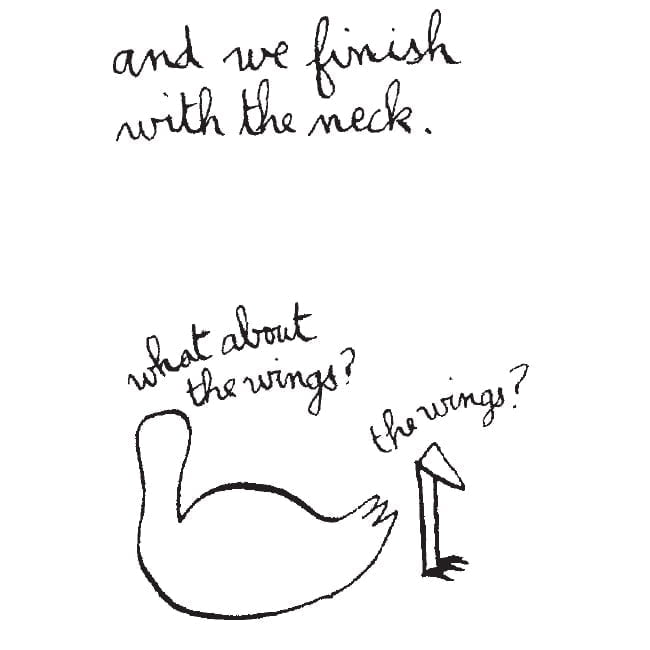 and we finish
with the neck.
what about
the wings?
the wings?